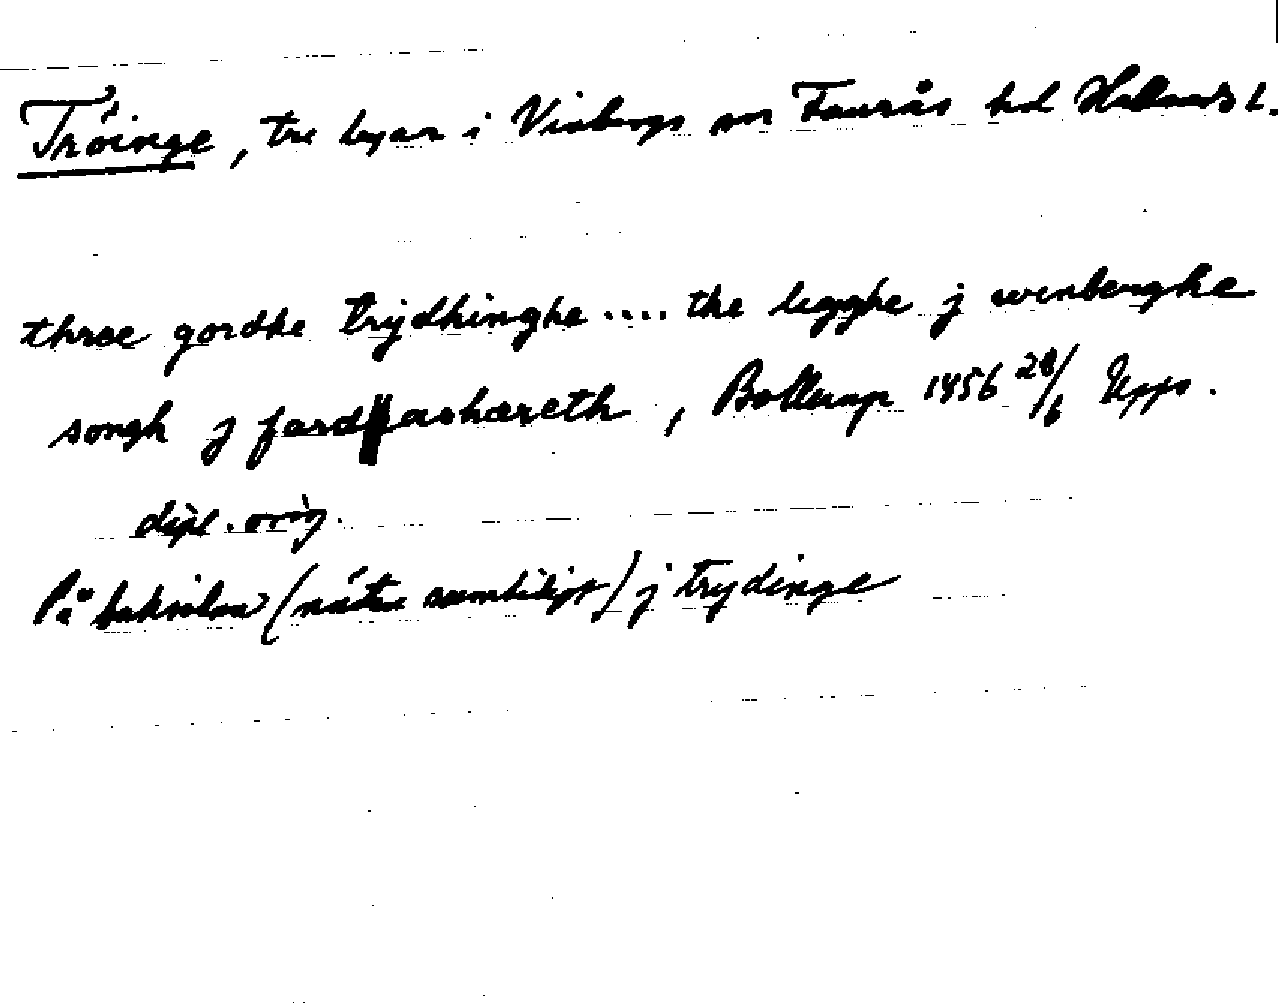 Tröinge, tre byar i Vinbergs sn Faurås hd Hallands l.
three gordhe trijdhinghe .... the legghe j winberghe
songh j fardhashæreth, Bollerup 1456 28/6 Upps.
dipl. orig.
På baksidan (nästan samtidigt) j trydinge